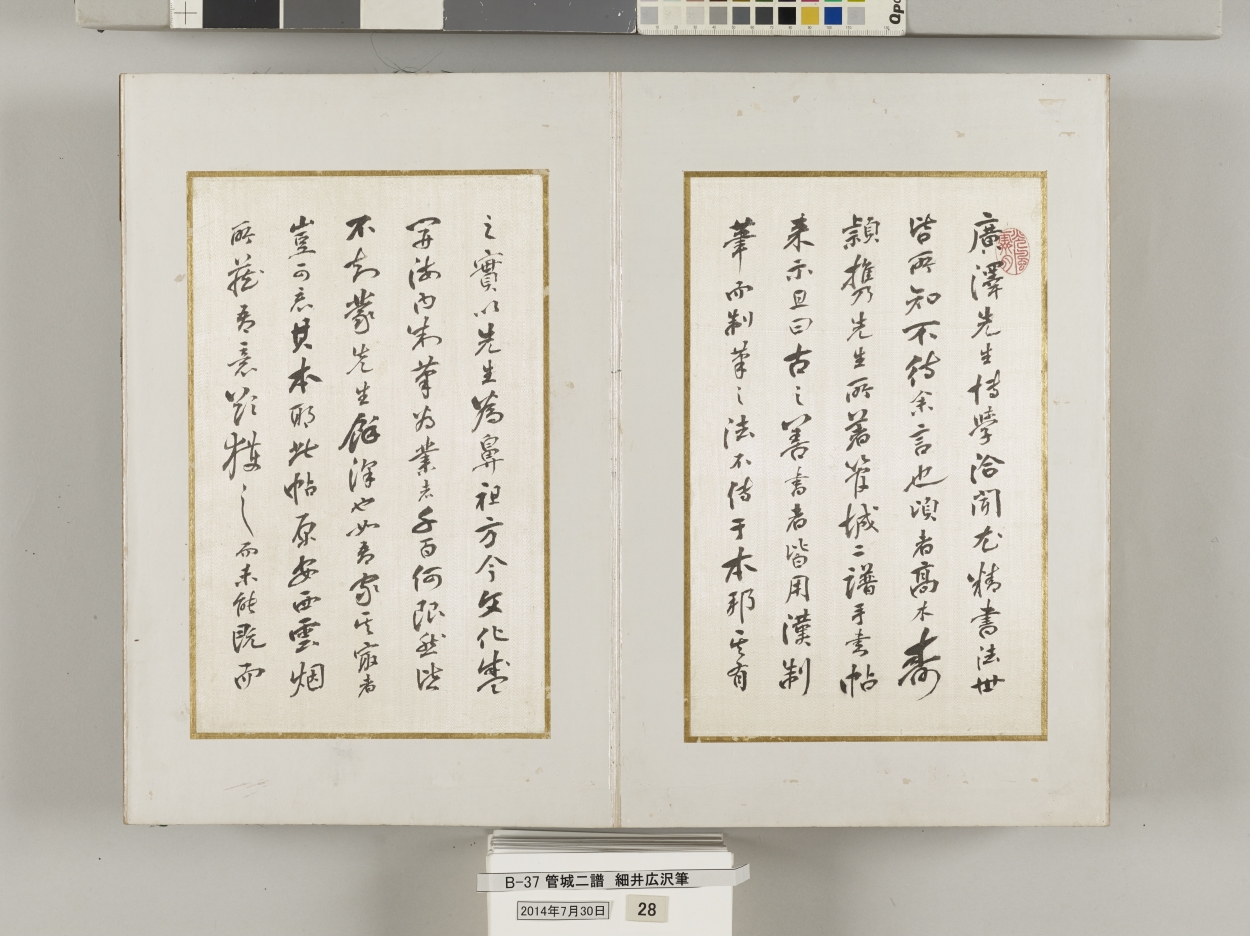 廣澤先生博學洽聞尤精書法世
皆所知不待余言也頃者高木壽
穎携乃先生所著管城二譜手書帖
来示且曰古之善書者皆用漢制
筆而制筆之法不傳于本邦其有
之實以先生為鼻祖方今文化盛
開海内制筆為業者千百何限然皆
不知蒙先生餘澤也如吾家其最者
豈可忘其本耶此帖原安西雲烟
所蔵吾意欲獲之而未能既而
B-37 管城二譜 細井広沢筆
2014年7月30日
28